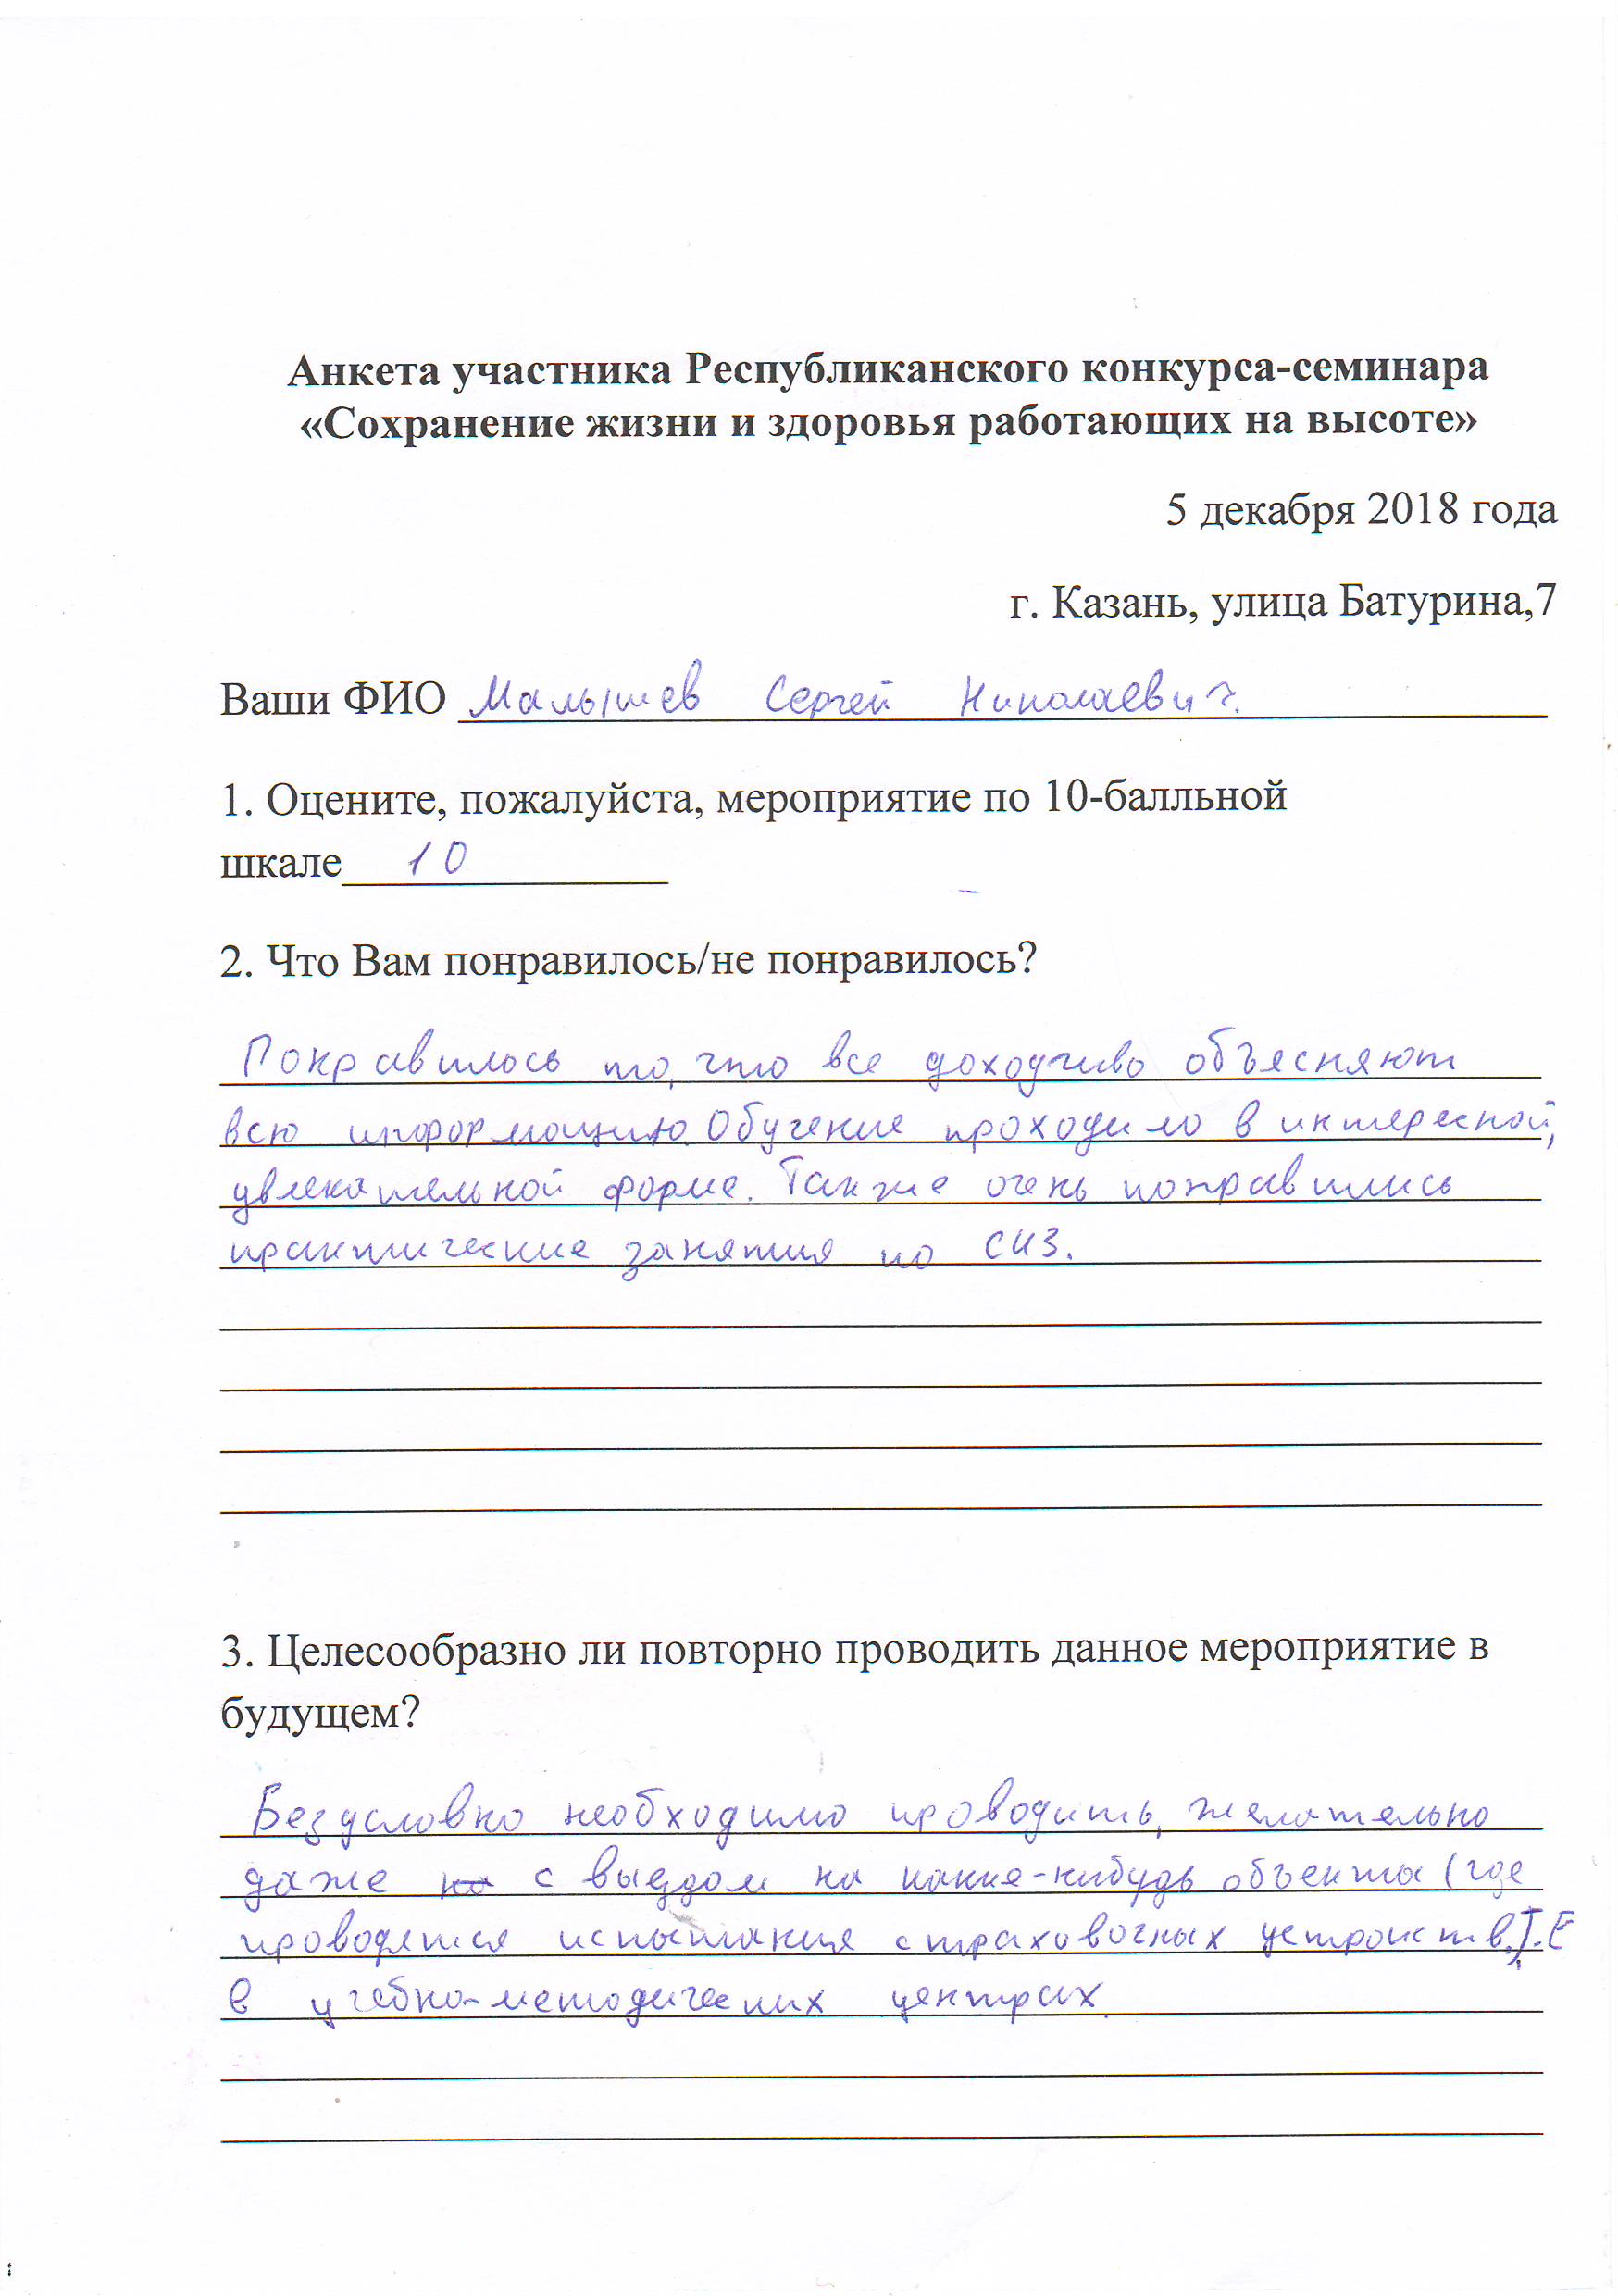 Анкета участника Республиканского конкурса-семинара
«Сохранение жизни и здоровья работающих на высоте»
5 декабря 2018 года
г. Казань, улица Батурина,7
Ваши ФИО Малышев Сергей Николаевич.
1. Оцените, пожалуйста, мероприятие по 10-балльной
шкале 10
2. Что Вам понравилось/не понравилось?
Понравилось то, что все доходчиво объясняют
всю информацию. Обучение проходило в интересной,
увлекательной форме. Также очень понравились
практические занятия по СИЗ.
3. Целесообразно ли повторно проводить данное мероприятие в
будущем?
Безусловно необходимо проводить, желательно
даже на с выездом на какие-нибудь объекты (где
проводятся испытания страховочных устройств). Т.Е
в учебно-методических центрах.